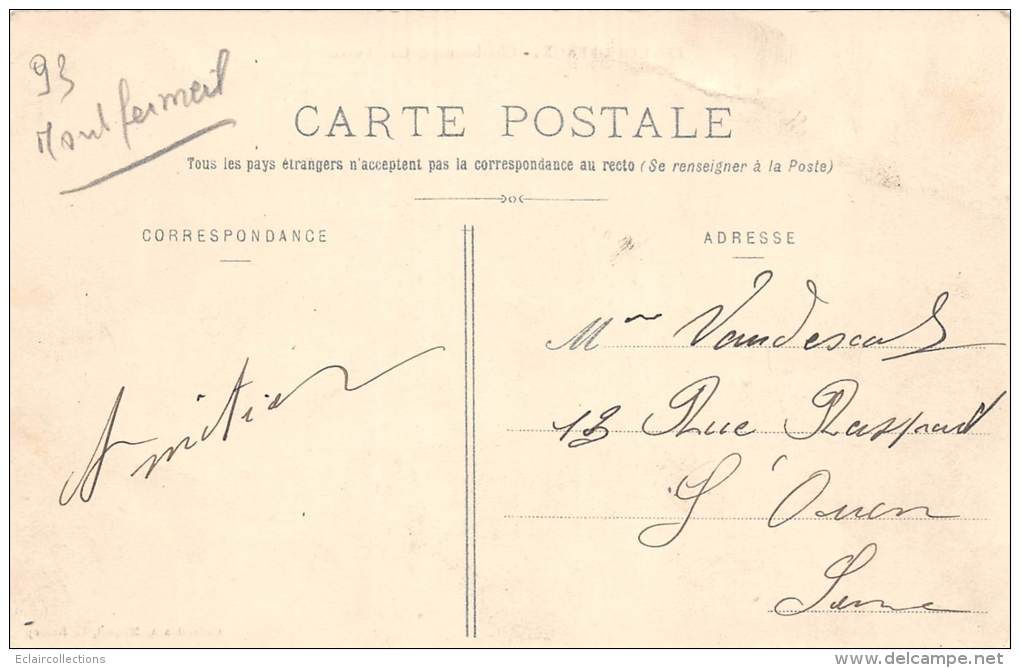 93
Montfermeil
CARTE POSTALE
Tous les pays étrangers n'acceptent pas la correspondance au recto (Se renseigner à la Poste)
CORRESPONDANCE
ADRESSE
Mme
13 Rue Raspail
St Ouen
Seine
Amitiés
Eclaircollections
www.delcampe.net